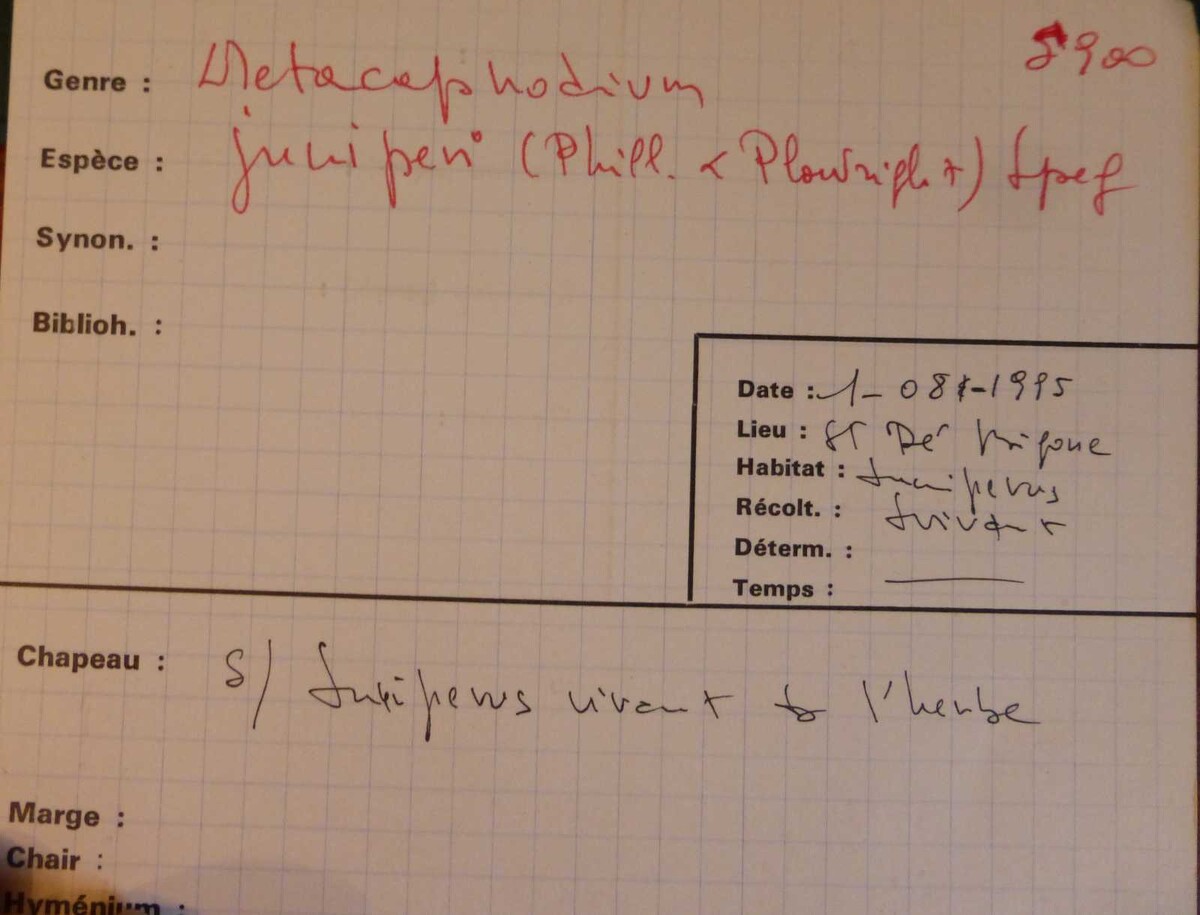 8900
Genre : Metacaphnodium
Espèce : juniperi (Phill. & Plowright) Speg
Synon. :
Biblioh. :
Date : 1-08-1995
Lieu : ST Pé
Habitat : Juniperus
Récolt. : vivant
Déterm. :
Temps : —
Chapeau : S/ Juniperus vivant l'herbe
Marge :
Chair :
Hyménium :